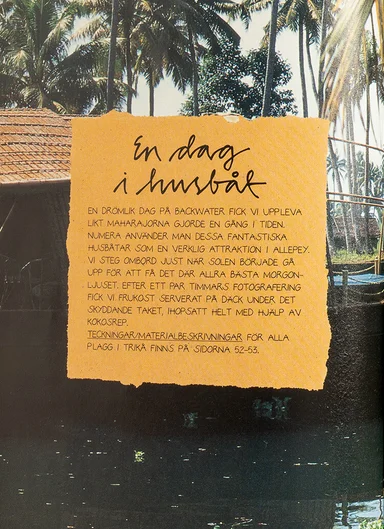 En dag
i husbåt
EN DRÖMLIK DAG PÅ BACKWATER FICK VI UPPLEVA
LIKT MAHARAJORNA GJORDE EN GÅNG I TIDEN.
NUMERA ANVÄNDER MAN DESSA FANTASTISKA
HUSBÅTAR SOM EN VERKLIG ATTRAKTION I ALLEPEY.
VI STEG OMBORD JUST NÄR SOLEN BÖRJADE GÅ
UPP FÖR ATT FÅ DET DÄR ALLRA BÄSTA MORGON-
LJUSET. EFTER ETT PAR TIMMARS FOTOGRAFERING
FICK VI FRUKOST SERVERAT PÅ DÄCK UNDER DET
SKYDDANDE TAKET, IHOPSATT HELT MED HJÄLP AV
KOKOSREP.
TECKNINGAR/MATERIALBESKRIVNINGAR FÖR ALLA
PLAGG I TRIKÅ FINNS PÅ SIDORNA 52-53.